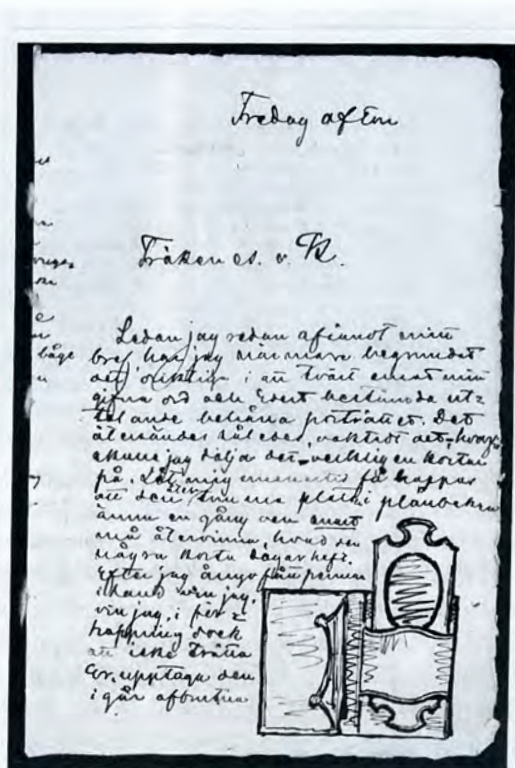 Fredag afton
Fröken M. v. R.
Sedan jag redan afsändt mitt
bref har jag närmare begrundat
det oriktiga i att tvärt emot min
gifna ord och Edert bestämda ut-
talande behålla porträttet. Det
återsändes således, oaktadt det
skulle jag dölja det verkligen kostar
på. Låt mig emellertid få hoppas
att den tomma plats i plånboken
ännu en gång
må återvinna, hvad den
några korta dagar haft.
Efter jag ännu pennan
i hand vill jag,
vill jag, i för-
hoppning dock
att icke trötta
Er, upptaga den
i går afbrutna